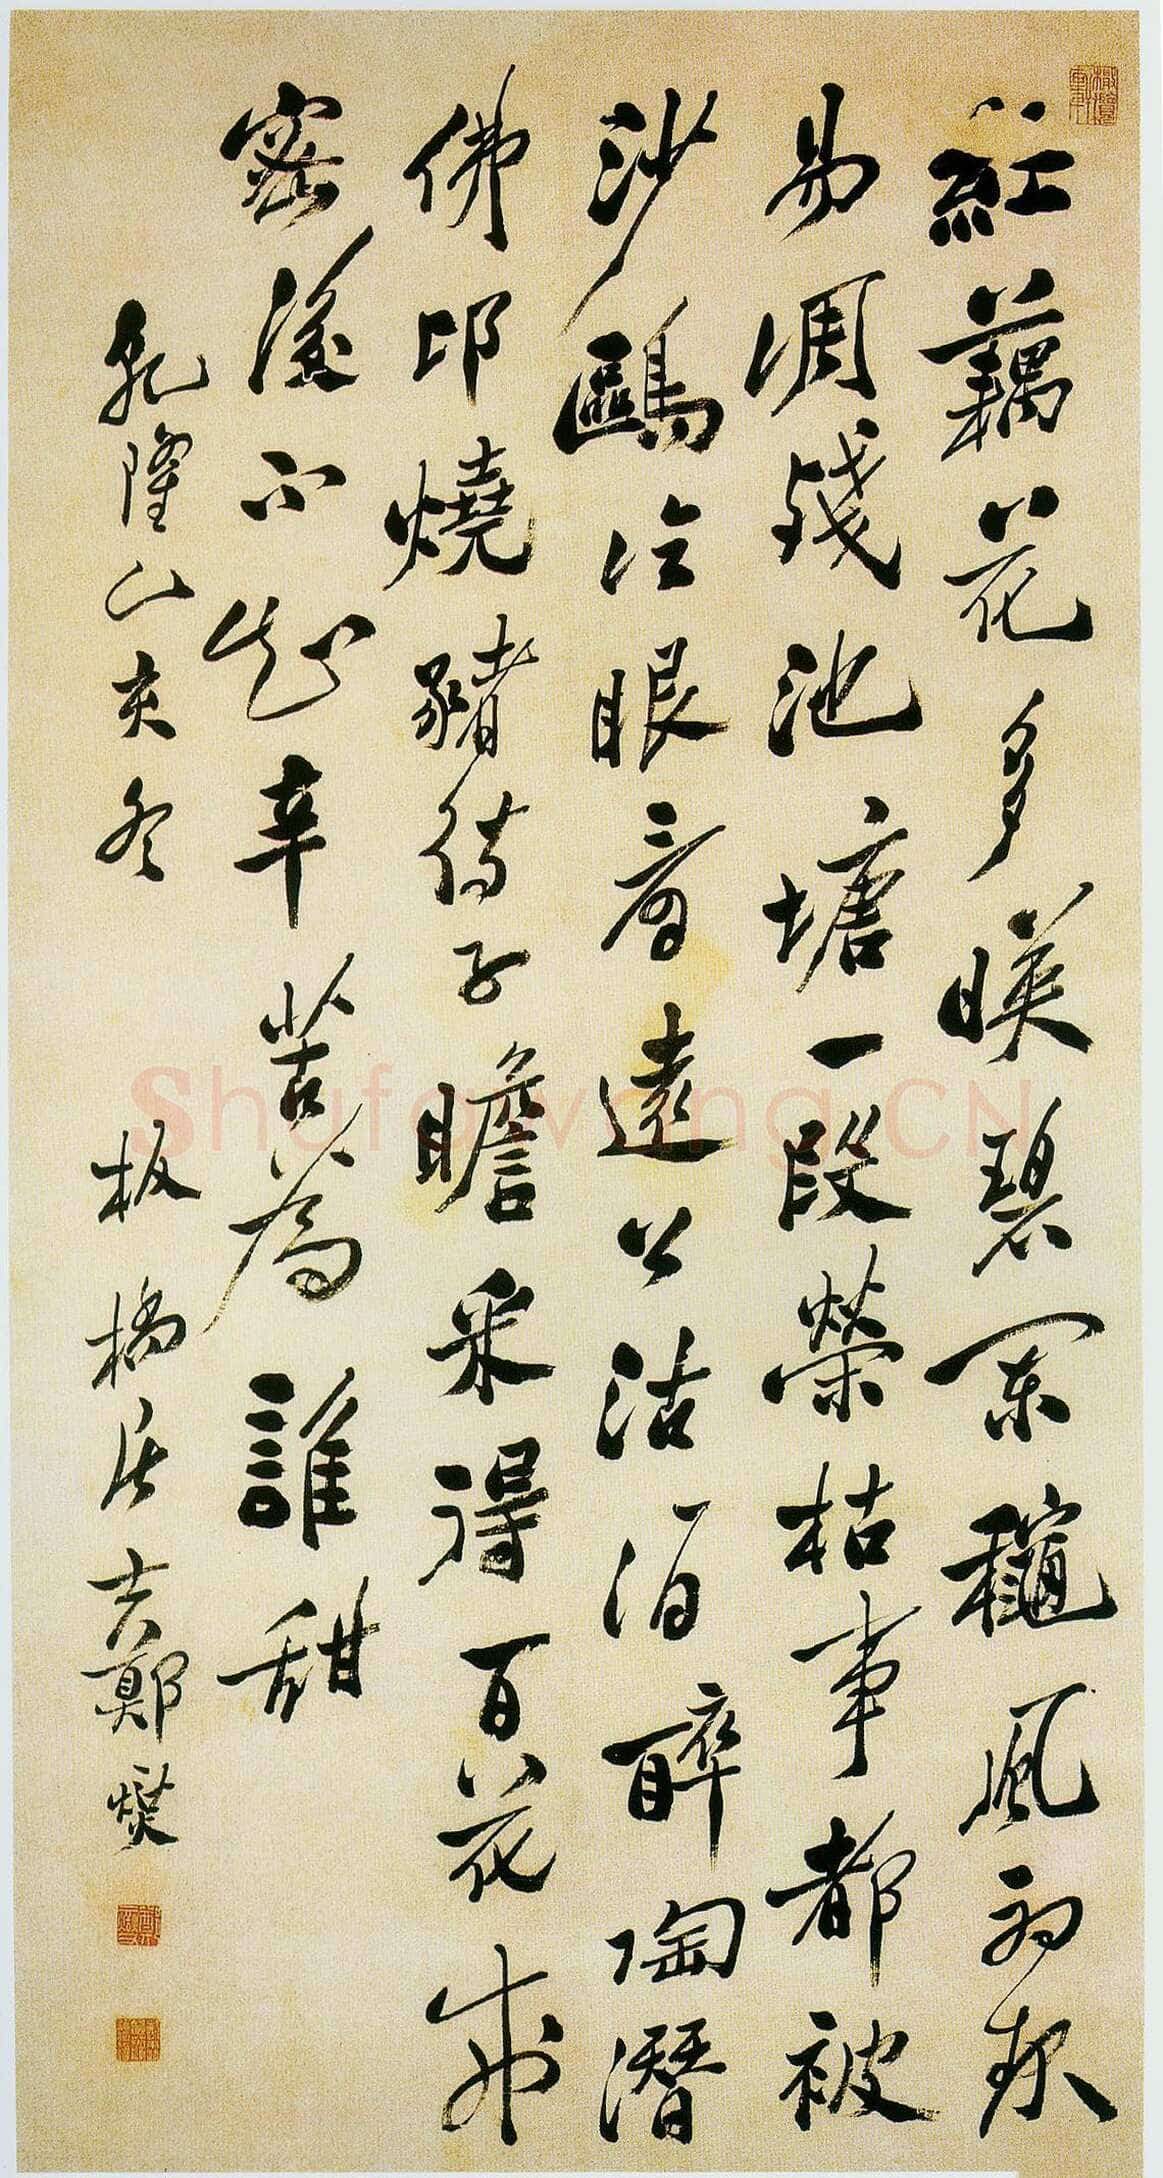 紅藕花多映碧闌秋風初起
易凋殘池塘一段榮枯事都被
沙鷗冷眼看遠公沽酒醉陶潛
佛印燒豬待子瞻采得百花成
蜜後不知辛苦為誰甜
乾隆
板橋居士鄭燮
Shufawang.CN